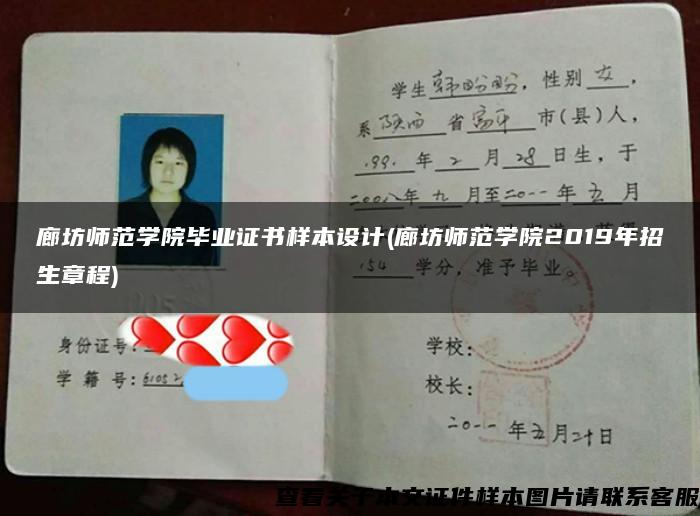 学生韩盼盼，性别女，
系陕西省富平市(县)人，
1991年2月28日生，于
二00八年九月至二0一一年五月
廊坊师范学院毕业证书样本设计(廊坊师范学院2019年招
生章程)
154学分，准予毕业。
身份证号：
学籍号：61052
学校：
校长：
二0一一年五月二十日
查看关于本文证件样本图片请联系客服